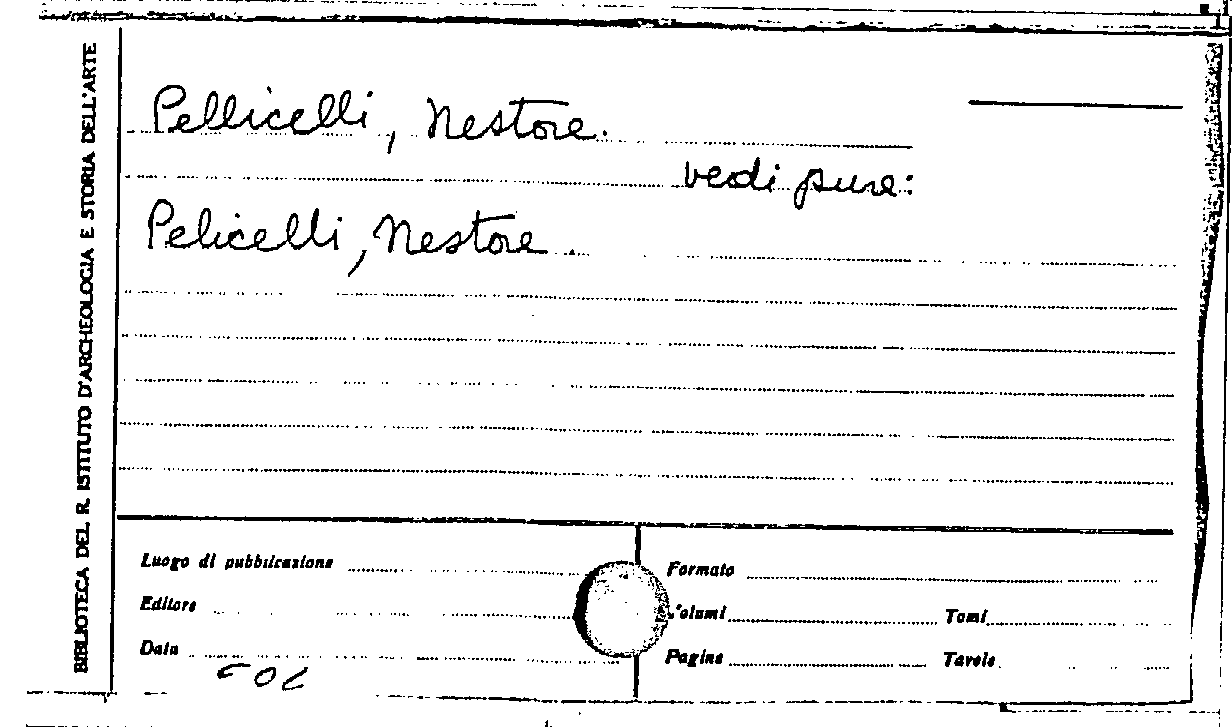 BIBLIOTECA DEL R. ISTITUTO D'ARCHEOLOGIA E STORIA DELL'ARTE
Pellicelli, Nestore.
vedi pure:
Pelicelli, Nestore.
Luogo di pubblicazione
Formato
Editore
Volumi
Tomi
Data
Pagine
Tavole